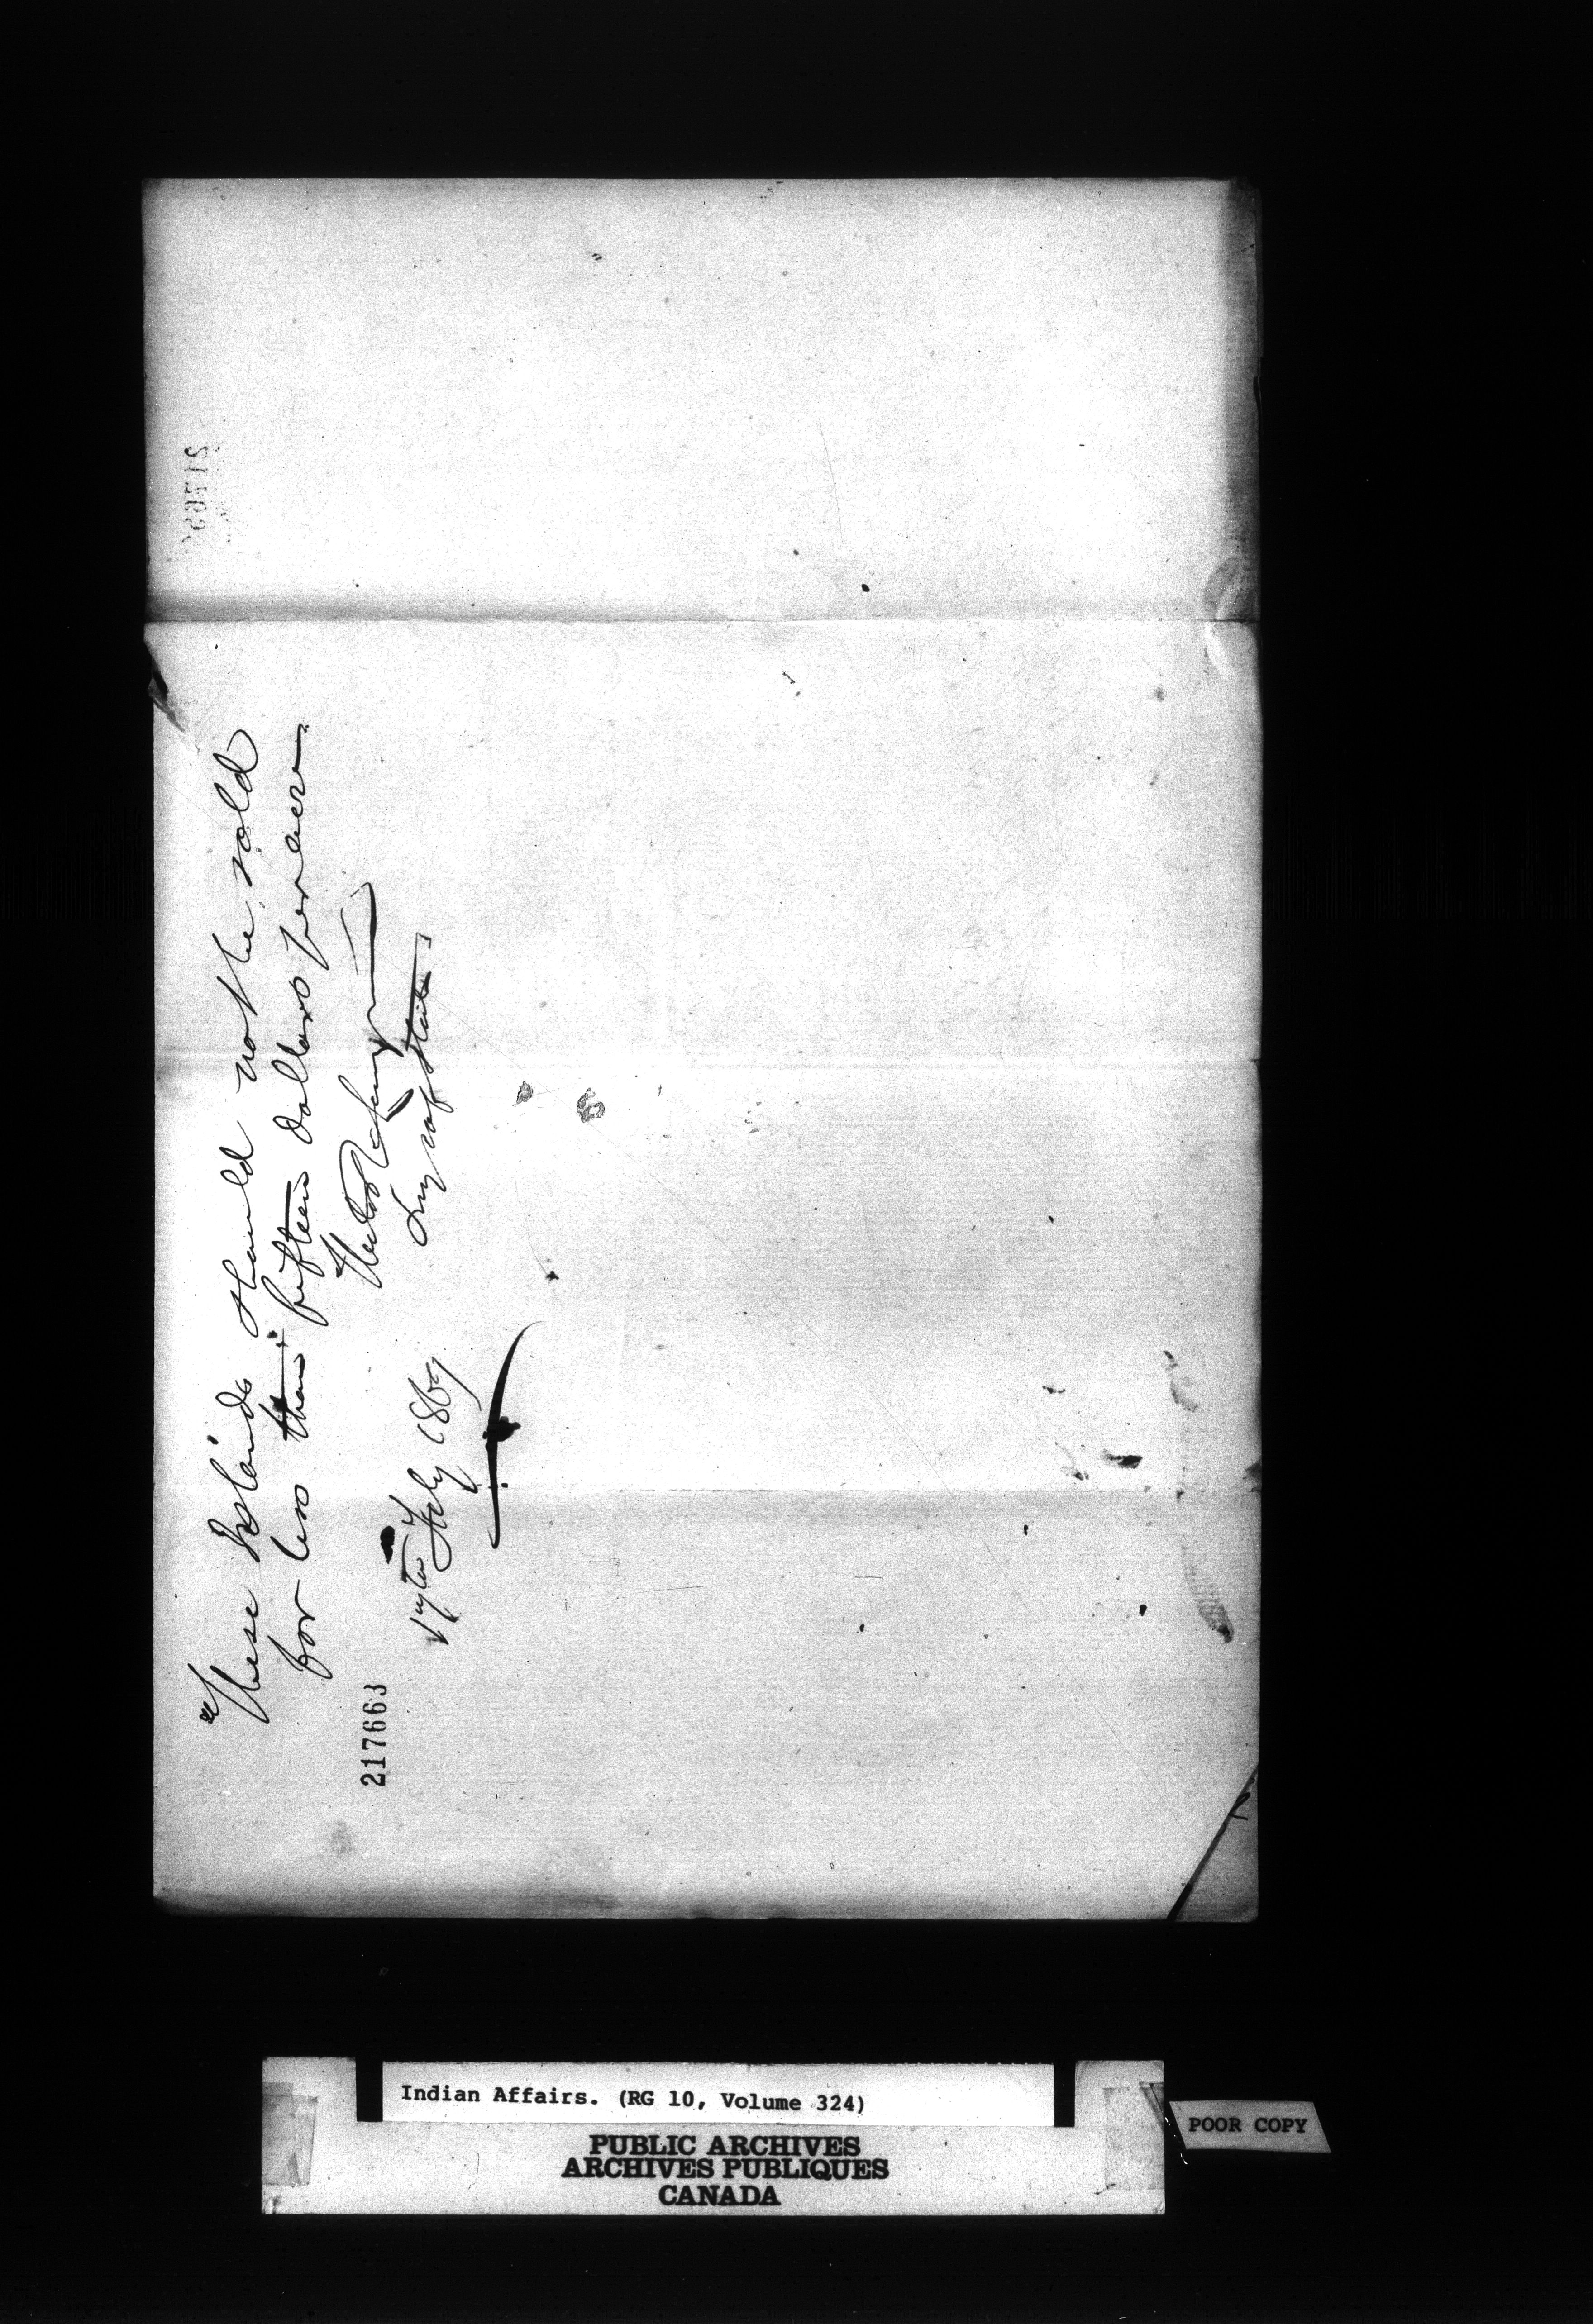 These Islands should not be sold
for less than fifteen dollars per acre
Hector L. Langevin
Secy of State
17th July 1869
217663
Indian Affairs. (RG 10, Volume 324)
PUBLIC ARCHIVES
ARCHIVES PUBLIQUES
CANADA
POOR COPY